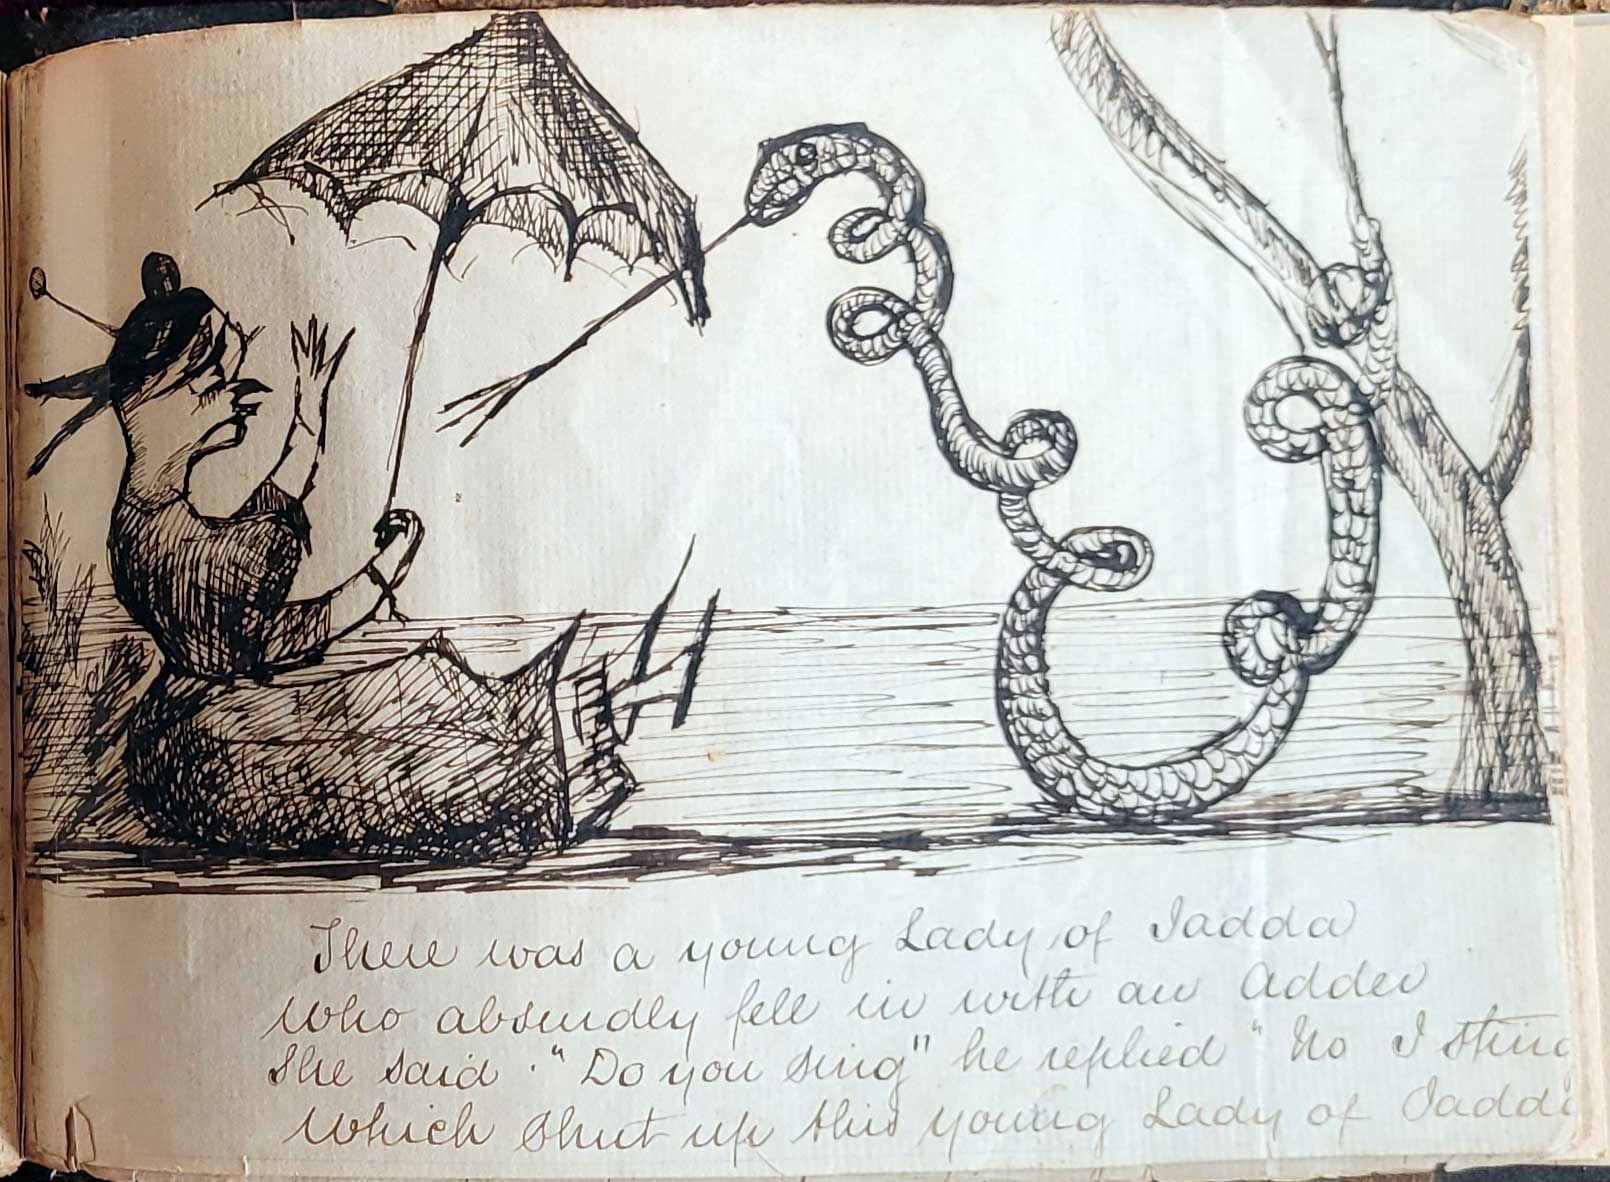 There was a young Lady of Jadda
Who absurdly fell in with an Adder
She said "Do you sing" he replied "No I sting
Which shut up this young Lady of Jadda